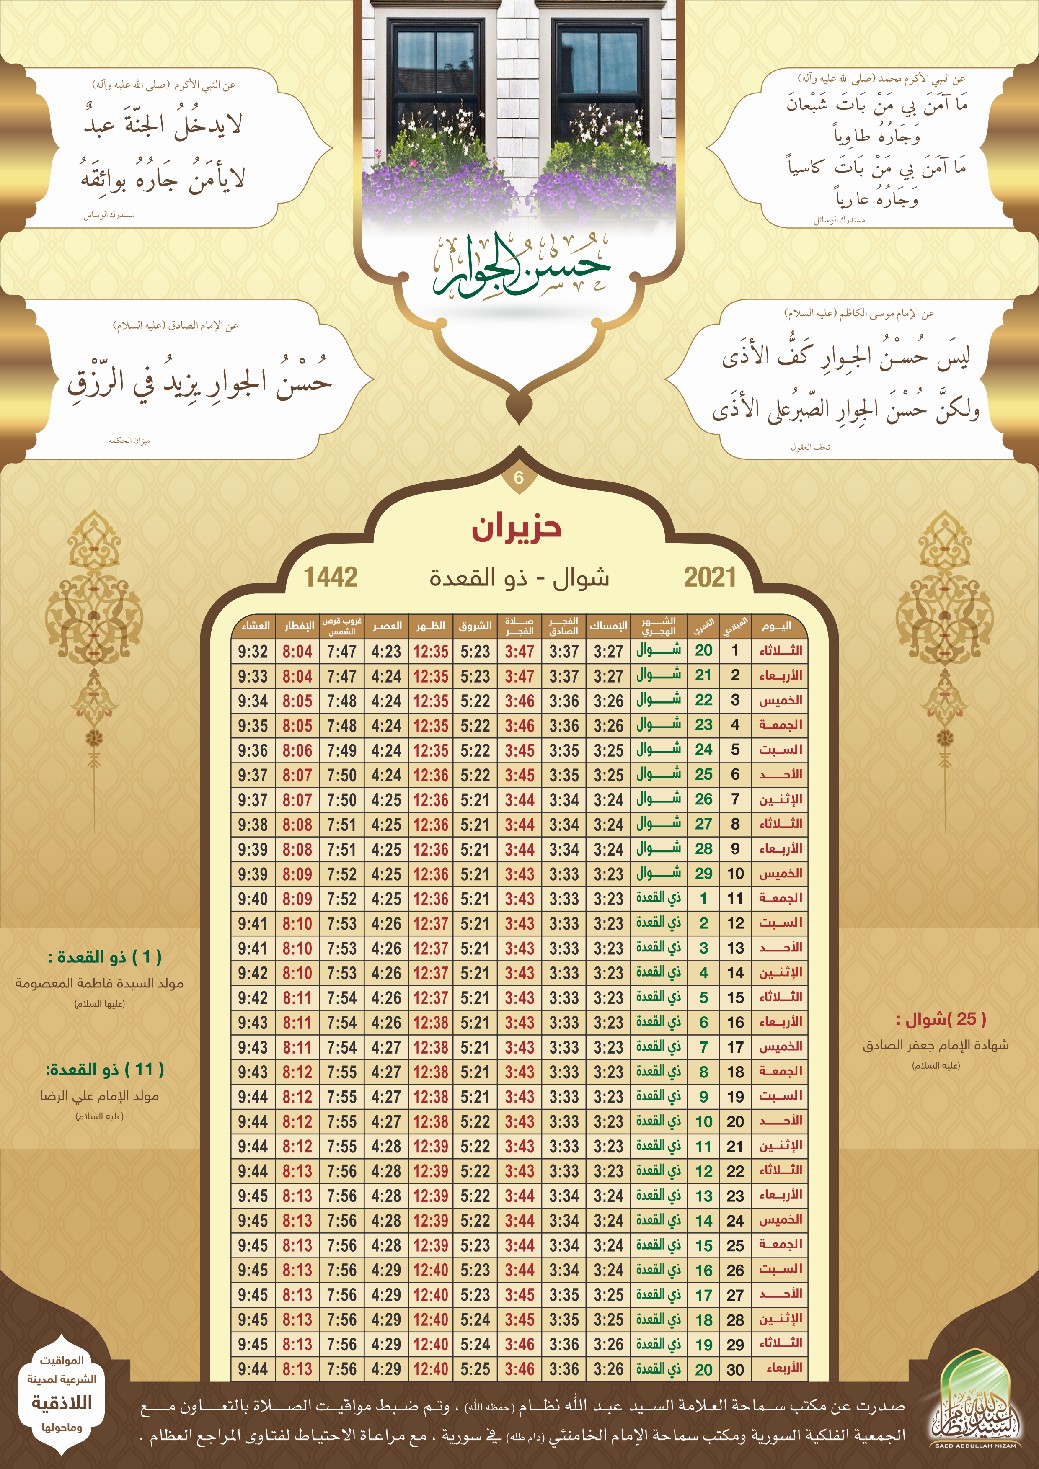 عن النبي الأكرم محمد (صلى الله عليه وآله)
مَا آمَنَ بي مَنْ بَاتَ شَبْعانَ
وَجَارُهُ طاوِياً
مَا آمَنَ بي مَنْ بَاتَ كاسياً
وَجَارُهُ عارياً
مستدرك الوسائل
عن النبي الأكرم (صلى الله عليه وآله)
لايدخُلُ الجنّةَ عبدٌ
لايأمَنُ جَارُهُ بوائِقَهُ
مستدرك الوسائل
حُسنُ الجوار
عن الإمام موسى الكاظم (عليه السلام)
ليسَ حُسْنُ الجِوارِ كَفُّ الأذَى
ولكنَّ حُسْنَ الجِوارِ الصّبرُ على الأذَى
تحف العقول
عن الإمام الصادق (عليه السلام)
حُسْنُ الجوارِ يزيدُ في الرّزْقِ
ميزان الحكمة
6
حزيران
2021 شوال - ذو القعدة 1442
اليوم الميلادي القمري الشهر الهجري الإمساك الفجر الصادق صلاة الفجر الشروق الظهر العصر غروب قرص الشمس الإفطار العشاء
الثلاثاء 1 20 شوال 3:27 3:37 3:47 5:23 12:35 4:23 7:47 8:04 9:32
الأربعاء 2 21 شوال 3:27 3:37 3:47 5:23 12:35 4:24 7:47 8:04 9:33
الخميس 3 22 شوال 3:26 3:36 3:46 5:22 12:35 4:24 7:48 8:05 9:34
الجمعة 4 23 شوال 3:26 3:36 3:46 5:22 12:35 4:24 7:48 8:05 9:35
السبت 5 24 شوال 3:25 3:35 3:45 5:22 12:35 4:24 7:49 8:06 9:36
الأحد 6 25 شوال 3:25 3:35 3:45 5:22 12:36 4:24 7:50 8:07 9:37
الإثنين 7 26 شوال 3:24 3:34 3:44 5:21 12:36 4:25 7:50 8:07 9:37
الثلاثاء 8 27 شوال 3:24 3:34 3:44 5:21 12:36 4:25 7:51 8:08 9:38
الأربعاء 9 28 شوال 3:24 3:34 3:44 5:21 12:36 4:25 7:51 8:08 9:39
الخميس 10 29 شوال 3:23 3:33 3:43 5:21 12:36 4:25 7:52 8:09 9:39
الجمعة 11 1 ذي القعدة 3:23 3:33 3:43 5:21 12:36 4:25 7:52 8:09 9:40
السبت 12 2 ذي القعدة 3:23 3:33 3:43 5:21 12:37 4:26 7:53 8:10 9:41
الأحد 13 3 ذي القعدة 3:23 3:33 3:43 5:21 12:37 4:26 7:53 8:10 9:41
الإثنين 14 4 ذي القعدة 3:23 3:33 3:43 5:21 12:37 4:26 7:53 8:10 9:42
الثلاثاء 15 5 ذي القعدة 3:23 3:33 3:43 5:21 12:37 4:26 7:54 8:11 9:42
الأربعاء 16 6 ذي القعدة 3:23 3:33 3:43 5:21 12:38 4:26 7:54 8:11 9:43
الخميس 17 7 ذي القعدة 3:23 3:33 3:43 5:21 12:38 4:27 7:54 8:11 9:43
الجمعة 18 8 ذي القعدة 3:23 3:33 3:43 5:21 12:38 4:27 7:55 8:12 9:43
السبت 19 9 ذي القعدة 3:23 3:33 3:43 5:21 12:38 4:27 7:55 8:12 9:44
الأحد 20 10 ذي القعدة 3:23 3:33 3:43 5:22 12:38 4:27 7:55 8:12 9:44
الإثنين 21 11 ذي القعدة 3:23 3:33 3:43 5:22 12:39 4:28 7:55 8:12 9:44
الثلاثاء 22 12 ذي القعدة 3:23 3:33 3:43 5:22 12:39 4:28 7:56 8:13 9:44
الأربعاء 23 13 ذي القعدة 3:24 3:34 3:44 5:22 12:39 4:28 7:56 8:13 9:45
الخميس 24 14 ذي القعدة 3:24 3:34 3:44 5:22 12:39 4:28 7:56 8:13 9:45
الجمعة 25 15 ذي القعدة 3:24 3:34 3:44 5:23 12:39 4:28 7:56 8:13 9:45
السبت 26 16 ذي القعدة 3:24 3:34 3:44 5:23 12:40 4:28 7:56 8:13 9:45
الأحد 27 17 ذي القعدة 3:25 3:35 3:45 5:23 12:40 4:29 7:56 8:13 9:45
الإثنين 28 18 ذي القعدة 3:25 3:35 3:45 5:24 12:40 4:29 7:56 8:13 9:45
الثلاثاء 29 19 ذي القعدة 3:26 3:36 3:46 5:24 12:40 4:29 7:56 8:13 9:45
الأربعاء 30 20 ذي القعدة 3:26 3:36 3:46 5:25 12:40 4:29 7:56 8:13 9:44
( 25 )شوال :
شهادة الإمام جعفر الصادق
(عليه السلام)
( 1 ) ذو القعدة :
مولد السيدة فاطمة المعصومة
(عليها السلام)
( 11 ) ذو القعدة:
مولد الإمام علي الرضا
(عليه السلام)
المواقيت
الشرعية لمدينة
اللاذقية
وماحولها
صدرت عن مكتب سماحة العلامة السيد عبد الله نظام (حفظه الله) ، وتم ضبط مواقيت الصلاة بالتعاون مع
الجمعية الفلكية السورية ومكتب سماحة الإمام الخامنئي (دام ظله) في سورية ، مع مراعاة الاحتياط لفتاوى المراجع العظام .
السيد عبد الله نظام
SAED ABDULLAH NIZAM